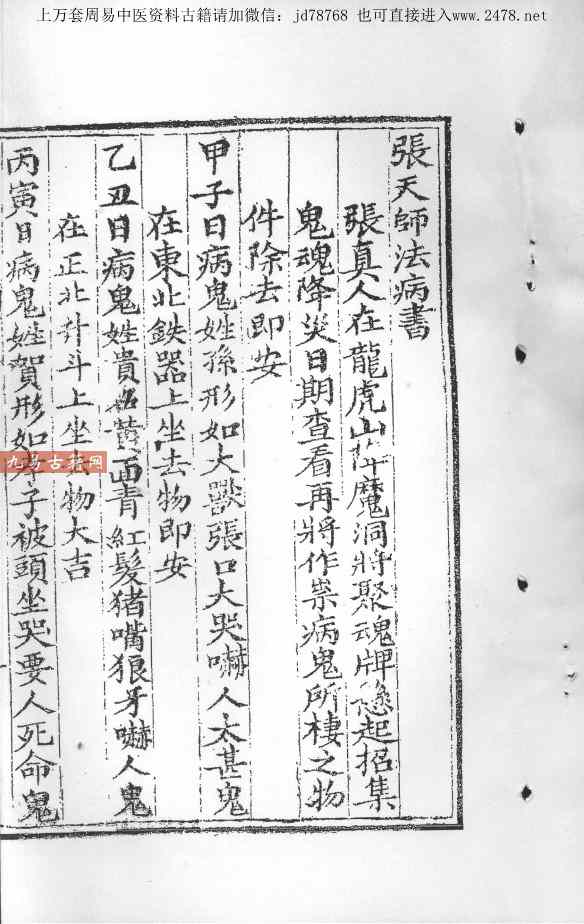 上万套周易中医资料古籍请加微信：jd78768 也可直接进入www.2478.net
張天師法病書
張真人在龍虎山降魔洞將聚魂牌起招集
鬼魂降災日期查看再將作祟病鬼所棲之物
件除去即安
甲子日病鬼姓孫形如大獸張口大哭嚇人太甚鬼
在東北鉄器上坐去物即安
乙丑日病鬼姓貴名黄面青紅髮猪嘴狼牙嚇人鬼
在正北升斗上坐去物大吉
丙寅日病鬼姓賀形如孝子被頭坐哭要人死命鬼
九易古籍网